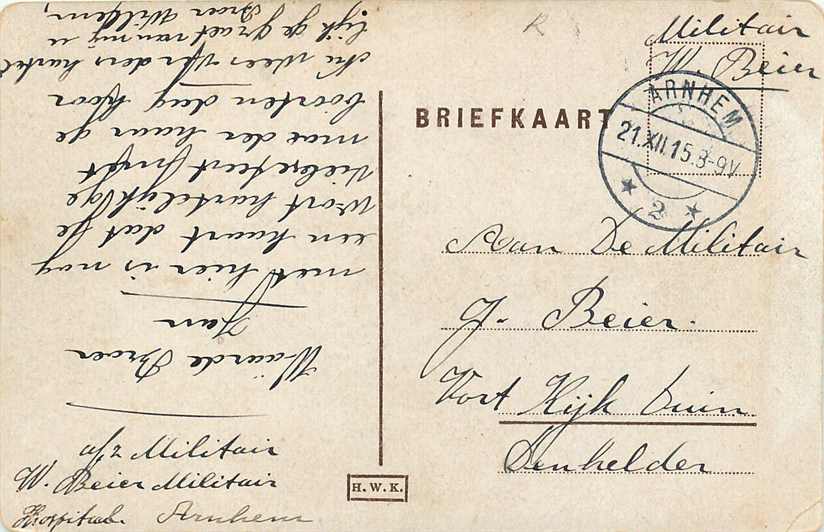 Militair
W. Beier
BRIEFKAART
ARNHEM.
21.XII.15.8-9V
2
Aan De Militair
J. Beier.
Vort Kijk Duin
Denhelder
Waarde Broer
Jan
met hier is nog
een kaart dat je
wort hartelijkge
vielseseteert
met der haar ge
boorten dag hoor
nu wees ver ders hartel
lijk ge groet van mij u
Broer Willem,
a/z Militair
W. Beier Militair
Hospitaal Arnhem
H.W.K.